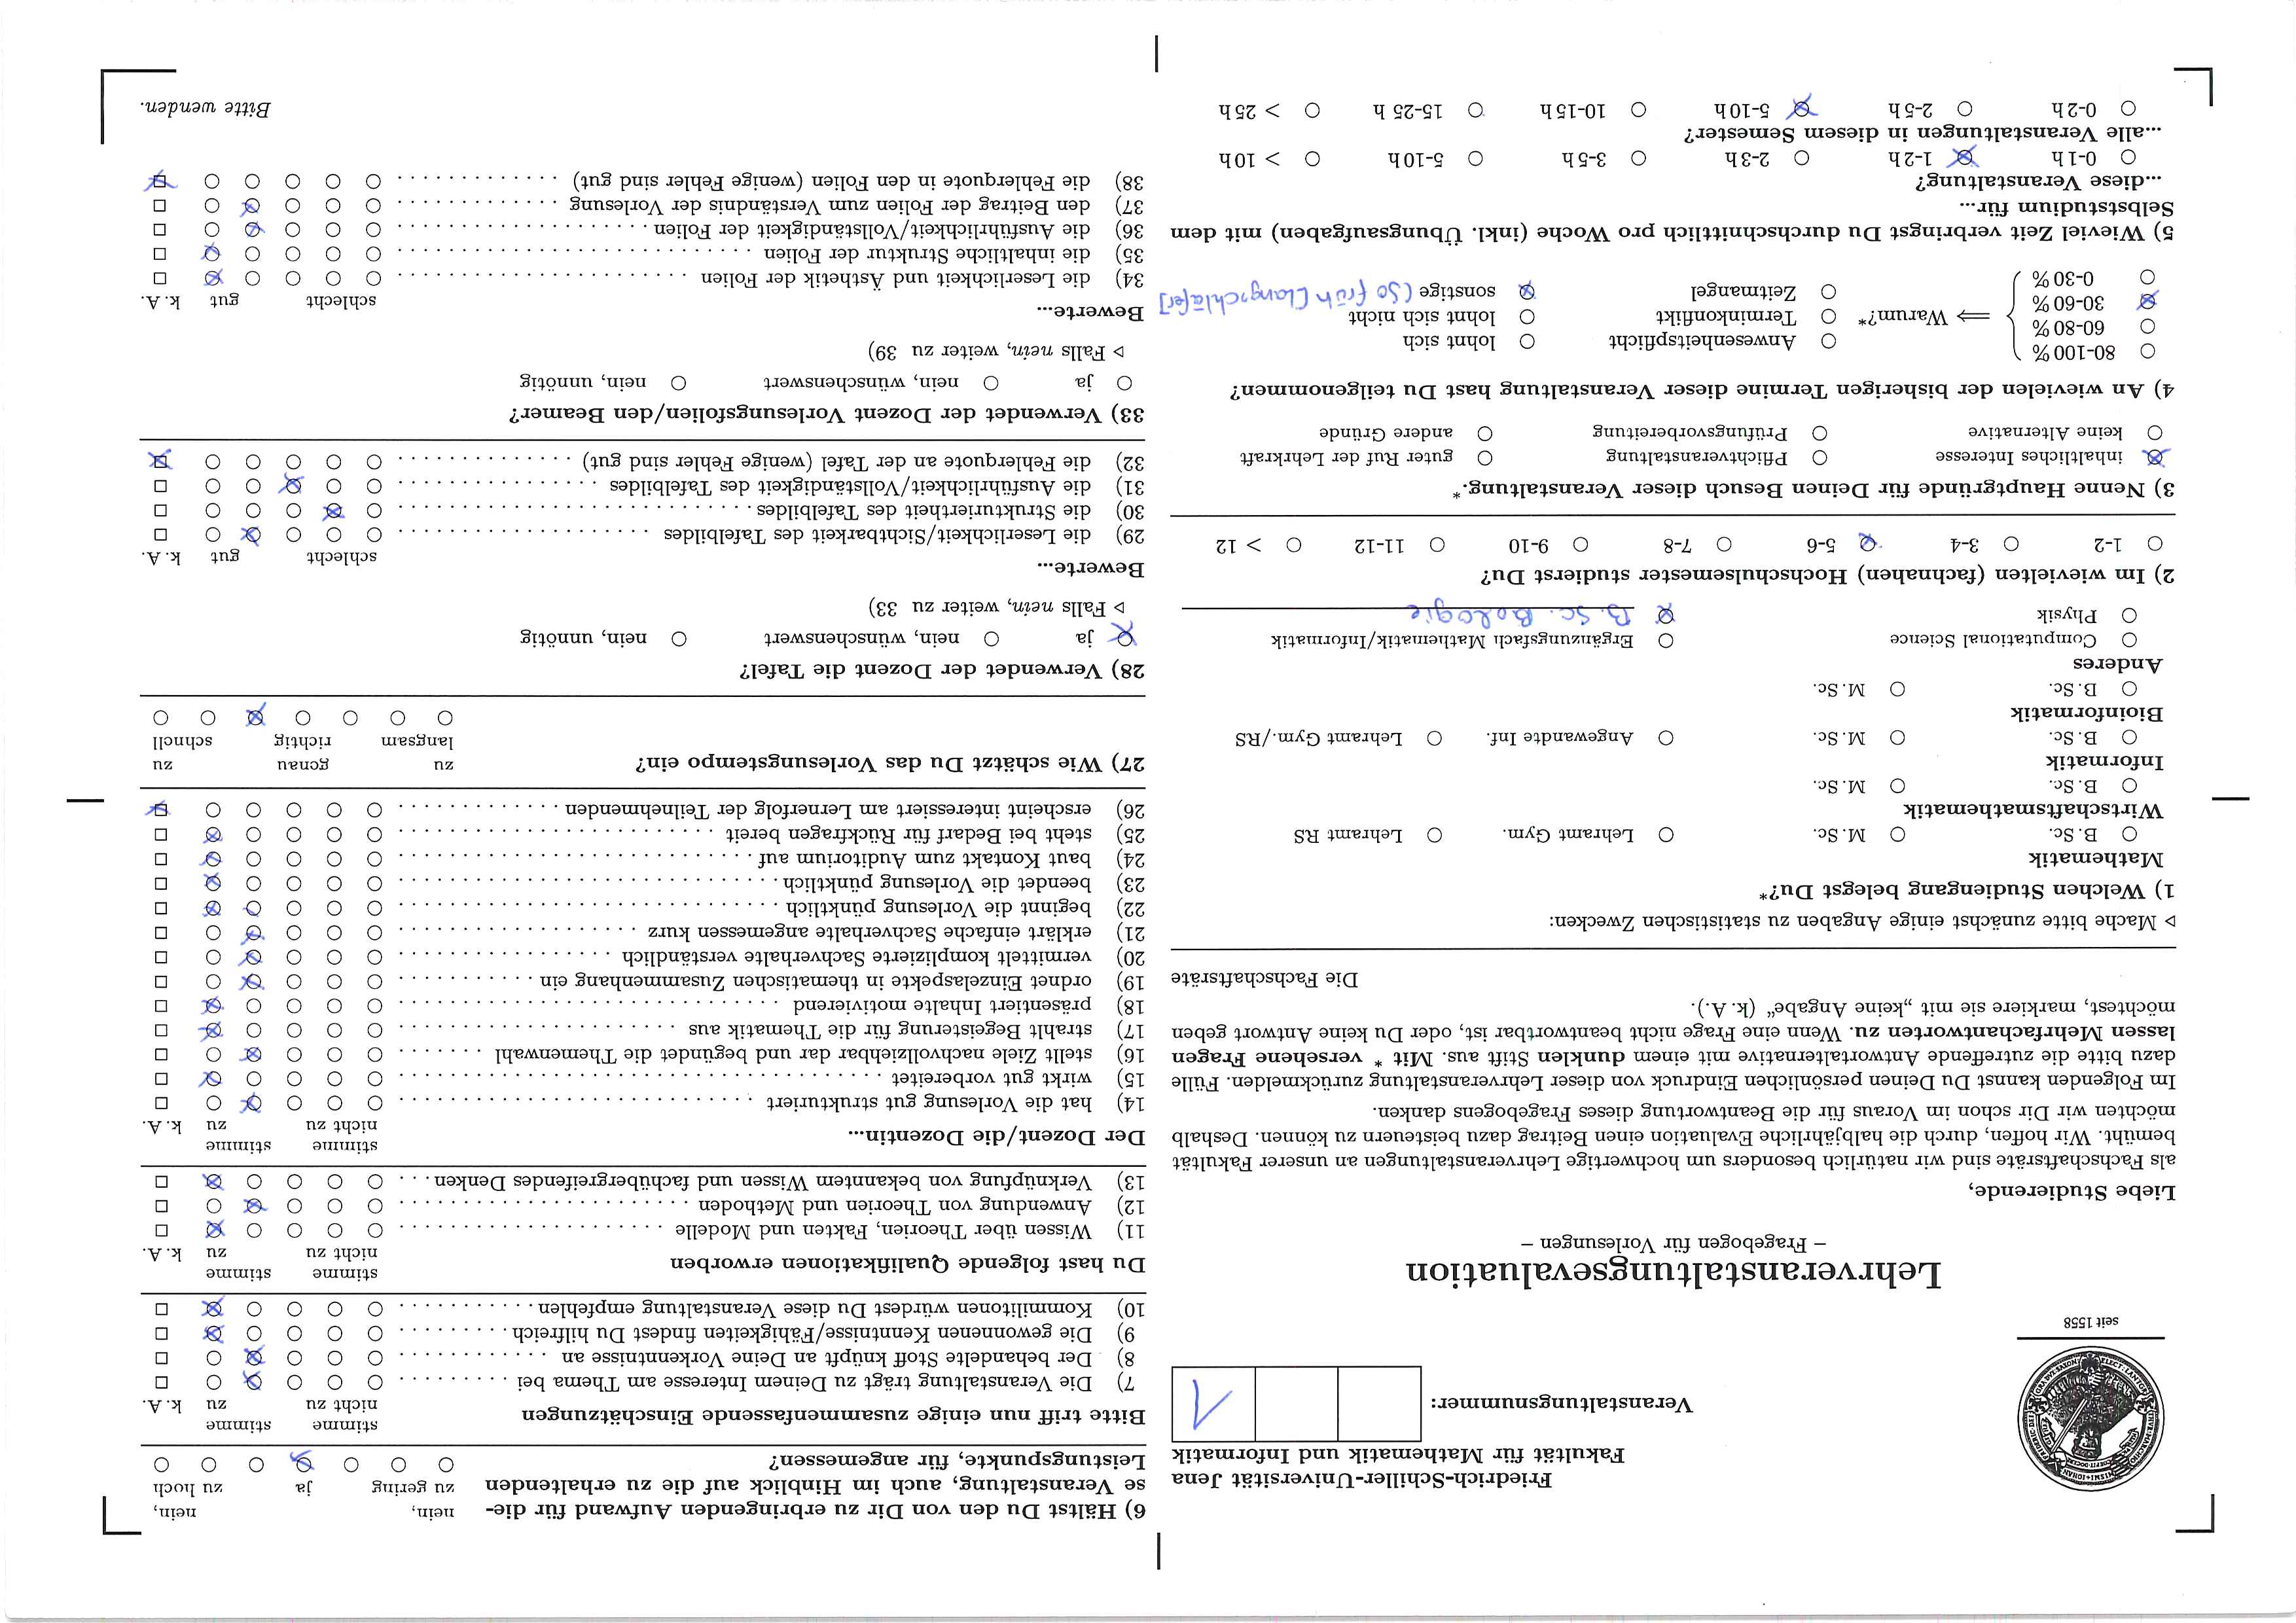 Friedrich-Schiller-Universität Jena
Fakultät für Mathematik und Informatik
Veranstaltungsnummer:
1
seit 1558
Lehrveranstaltungsevaluation
– Fragebogen für Vorlesungen –
Liebe Studierende,
als Fachschaftsräte sind wir natürlich besonders um hochwertige Lehrveranstaltungen an unserer Fakultät
bemüht. Wir hoffen, durch die halbjährliche Evaluation einen Beitrag dazu beisteuern zu können. Deshalb
möchten wir Dir schon im Voraus für die Beantwortung dieses Fragebogens danken.
Im Folgenden kannst Du Deinen persönlichen Eindruck von dieser Lehrveranstaltung zurückmelden. Fülle
dazu bitte die zutreffende Antwortalternative mit einem dunklen Stift aus. Mit * versehene Fragen
lassen Mehrfachantworten zu. Wenn eine Frage nicht beantwortbar ist, oder Du keine Antwort geben
möchtest, markiere sie mit „keine Angabe“ (k. A.).
Die Fachschaftsräte
▹ Mache bitte zunächst einige Angaben zu statistischen Zwecken:
1) Welchen Studiengang belegst Du?*
Mathematik
B. Sc. M. Sc. Lehramt Gym. Lehramt RS
Wirtschaftsmathematik
B. Sc. M. Sc.
Informatik
B. Sc. M. Sc. Angewandte Inf. Lehramt Gym./RS
Bioinformatik
B. Sc. M. Sc.
Anderes
Computational Science Ergänzungsfach Mathematik/Informatik
Physik B. Sc. Biologie
2) Im wievielten (fachnahen) Hochschulsemester studierst Du?
1-2 3-4 5-6 7-8 9-10 11-12 > 12
3) Nenne Hauptgründe für Deinen Besuch dieser Veranstaltung.*
inhaltliches Interesse Pflichtveranstaltung guter Ruf der Lehrkraft
keine Alternative Prüfungsvorbereitung andere Gründe
4) An wievielen der bisherigen Termine dieser Veranstaltung hast Du teilgenommen?
80-100 % Anwesenheitspflicht lohnt sich
60-80 % ⟹ Warum?* Terminkonflikt lohnt sich nicht
30-60 % Zeitmangel sonstige (so früh [Langschläfer]
0-30 %
5) Wieviel Zeit verbringst Du durchschnittlich pro Woche (inkl. Übungsaufgaben) mit dem
Selbststudium für...
...diese Veranstaltung?
0-1 h 1-2 h 2-3 h 3-5 h 5-10 h > 10 h
...alle Veranstaltungen in diesem Semester?
0-2 h 2-5 h 5-10 h 10-15 h 15-25 h > 25 h
6) Hältst Du den von Dir zu erbringenden Aufwand für die- nein, nein,
se Veranstaltung, auch im Hinblick auf die zu erhaltenden zu gering ja zu hoch
Leistungspunkte, für angemessen?
Bitte triff nun einige zusammenfassende Einschätzungen stimme nicht zu stimme zu k. A.
7) Die Veranstaltung trägt zu Deinem Interesse am Thema bei
8) Der behandelte Stoff knüpft an Deine Vorkenntnisse an
9) Die gewonnenen Kenntnisse/Fähigkeiten findest Du hilfreich
10) Kommilitonen würdest Du diese Veranstaltung empfehlen
Du hast folgende Qualifikationen erworben stimme nicht zu stimme zu k. A.
11) Wissen über Theorien, Fakten und Modelle
12) Anwendung von Theorien und Methoden
13) Verknüpfung von bekanntem Wissen und fachübergreifendes Denken
Der Dozent/die Dozentin... stimme nicht zu stimme zu k. A.
14) hat die Vorlesung gut strukturiert
15) wirkt gut vorbereitet
16) stellt Ziele nachvollziehbar dar und begündet die Themenwahl
17) strahlt Begeisterung für die Thematik aus
18) präsentiert Inhalte motivierend
19) ordnet Einzelaspekte in thematischen Zusammenhang ein
20) vermittelt komplizierte Sachverhalte verständlich
21) erklärt einfache Sachverhalte angemessen kurz
22) beginnt die Vorlesung pünktlich
23) beendet die Vorlesung pünktlich
24) baut Kontakt zum Auditorium auf
25) steht bei Bedarf für Rückfragen bereit
26) erscheint interessiert am Lernerfolg der Teilnehmenden
27) Wie schätzt Du das Vorlesungstempo ein? zu langsam genau richtig zu schnell
28) Verwendet der Dozent die Tafel?
ja nein, wünschenswert nein, unnötig
▹ Falls nein, weiter zu 33)
Bewerte... schlecht gut k. A.
29) die Leserlichkeit/Sichtbarkeit des Tafelbildes
30) die Strukturiertheit des Tafelbildes
31) die Ausführlichkeit/Vollständigkeit des Tafelbildes
32) die Fehlerquote an der Tafel (wenige Fehler sind gut)
33) Verwendet der Dozent Vorlesungsfolien/den Beamer?
ja nein, wünschenswert nein, unnötig
▹ Falls nein, weiter zu 39)
Bewerte... schlecht gut k. A.
34) die Leserlichkeit und Ästhetik der Folien
35) die inhaltliche Struktur der Folien
36) die Ausführlichkeit/Vollständigkeit der Folien
37) den Beitrag der Folien zum Verständnis der Vorlesung
38) die Fehlerquote in den Folien (wenige Fehler sind gut)
Bitte wenden.